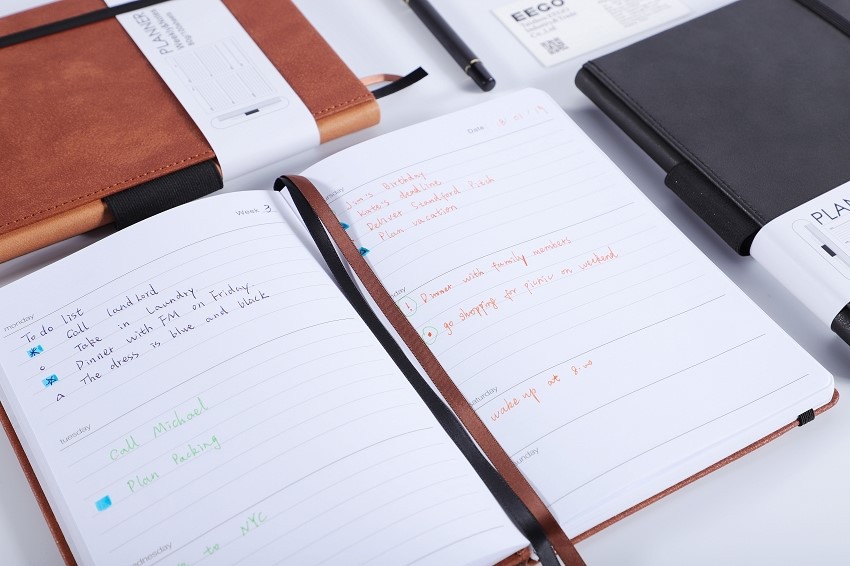 PLANNER
Weekly&Notes
EECO
Co.,Ltd
PLAN
Week 3
monday
To do list
Call landlord
Take in Laundry
Dinner with FM on Friday
The dress is blue and black
tuesday
Call Michael
Plan Packing
to NYC
Date
Jim's Birthday
Kate's deadline
Deliver Standford Pitch
Plan vacation
Dinner with family members
go shopping for picnic on weekend
wake up at 8:00